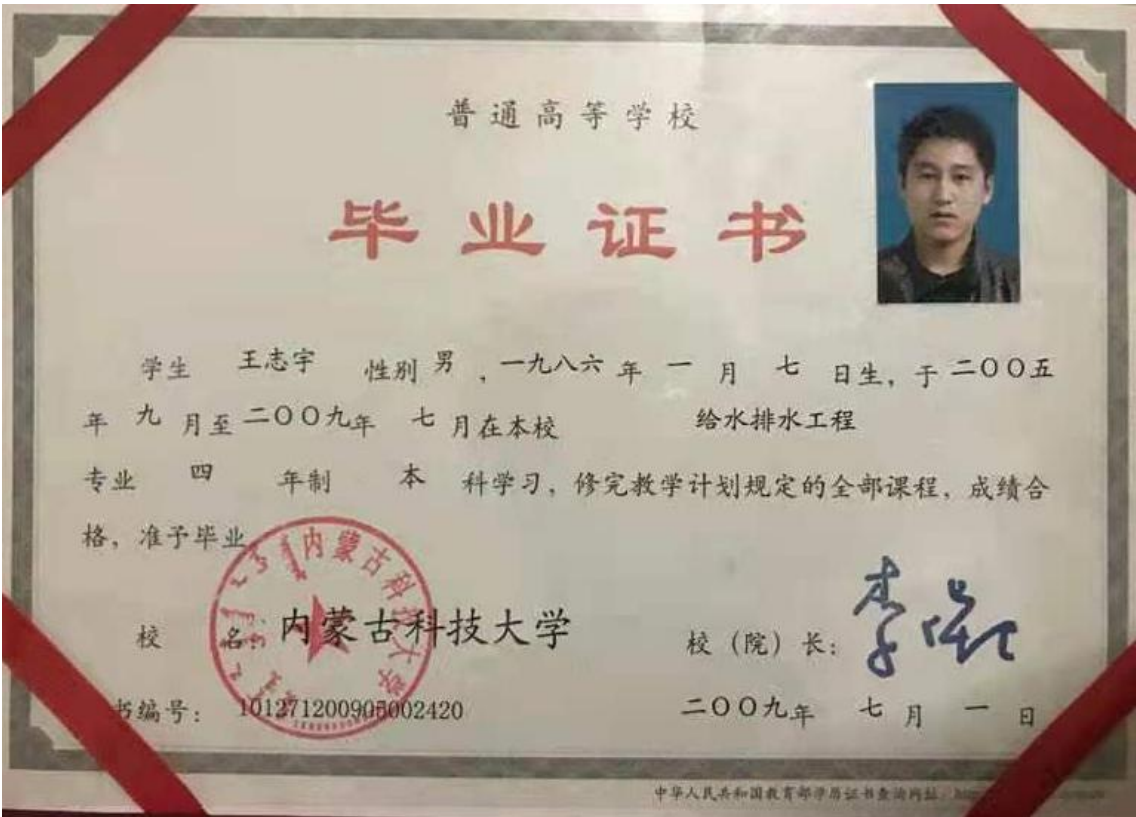 普通高等学校
毕业证书
学生 王志宇 性别 男 ，一九八六 年 一 月 七 日生，于 二〇〇五
年 九 月至 二〇〇九年 七 月在本校 给水排水工程
专业 四 年制 本 科学习，修完教学计划规定的全部课程，成绩合
格，准予毕业
内蒙古科技大学
校 名：内蒙古科技大学 校（院）长：
书编号：101271200905002420 二〇〇九年 七 月 一 日
中华人民共和国教育部学历证书查询网址：